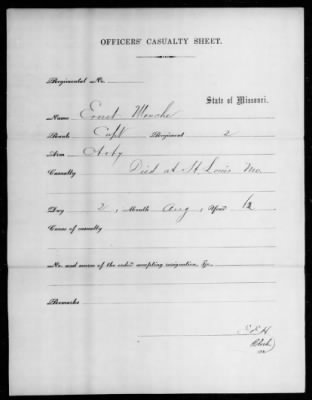 OFFICERS' CASUALTY SHEET.
Regimental No.
State of Missouri.
Name Ernst Monche
Rank Capt Regiment 2
Arm Arty
Casualty Died at St. Louis Mo.
Day 2, Month Aug, Year 62
Cause of casualty
No. and source of the order accepting resignation, &c.
Remarks
Clerk.